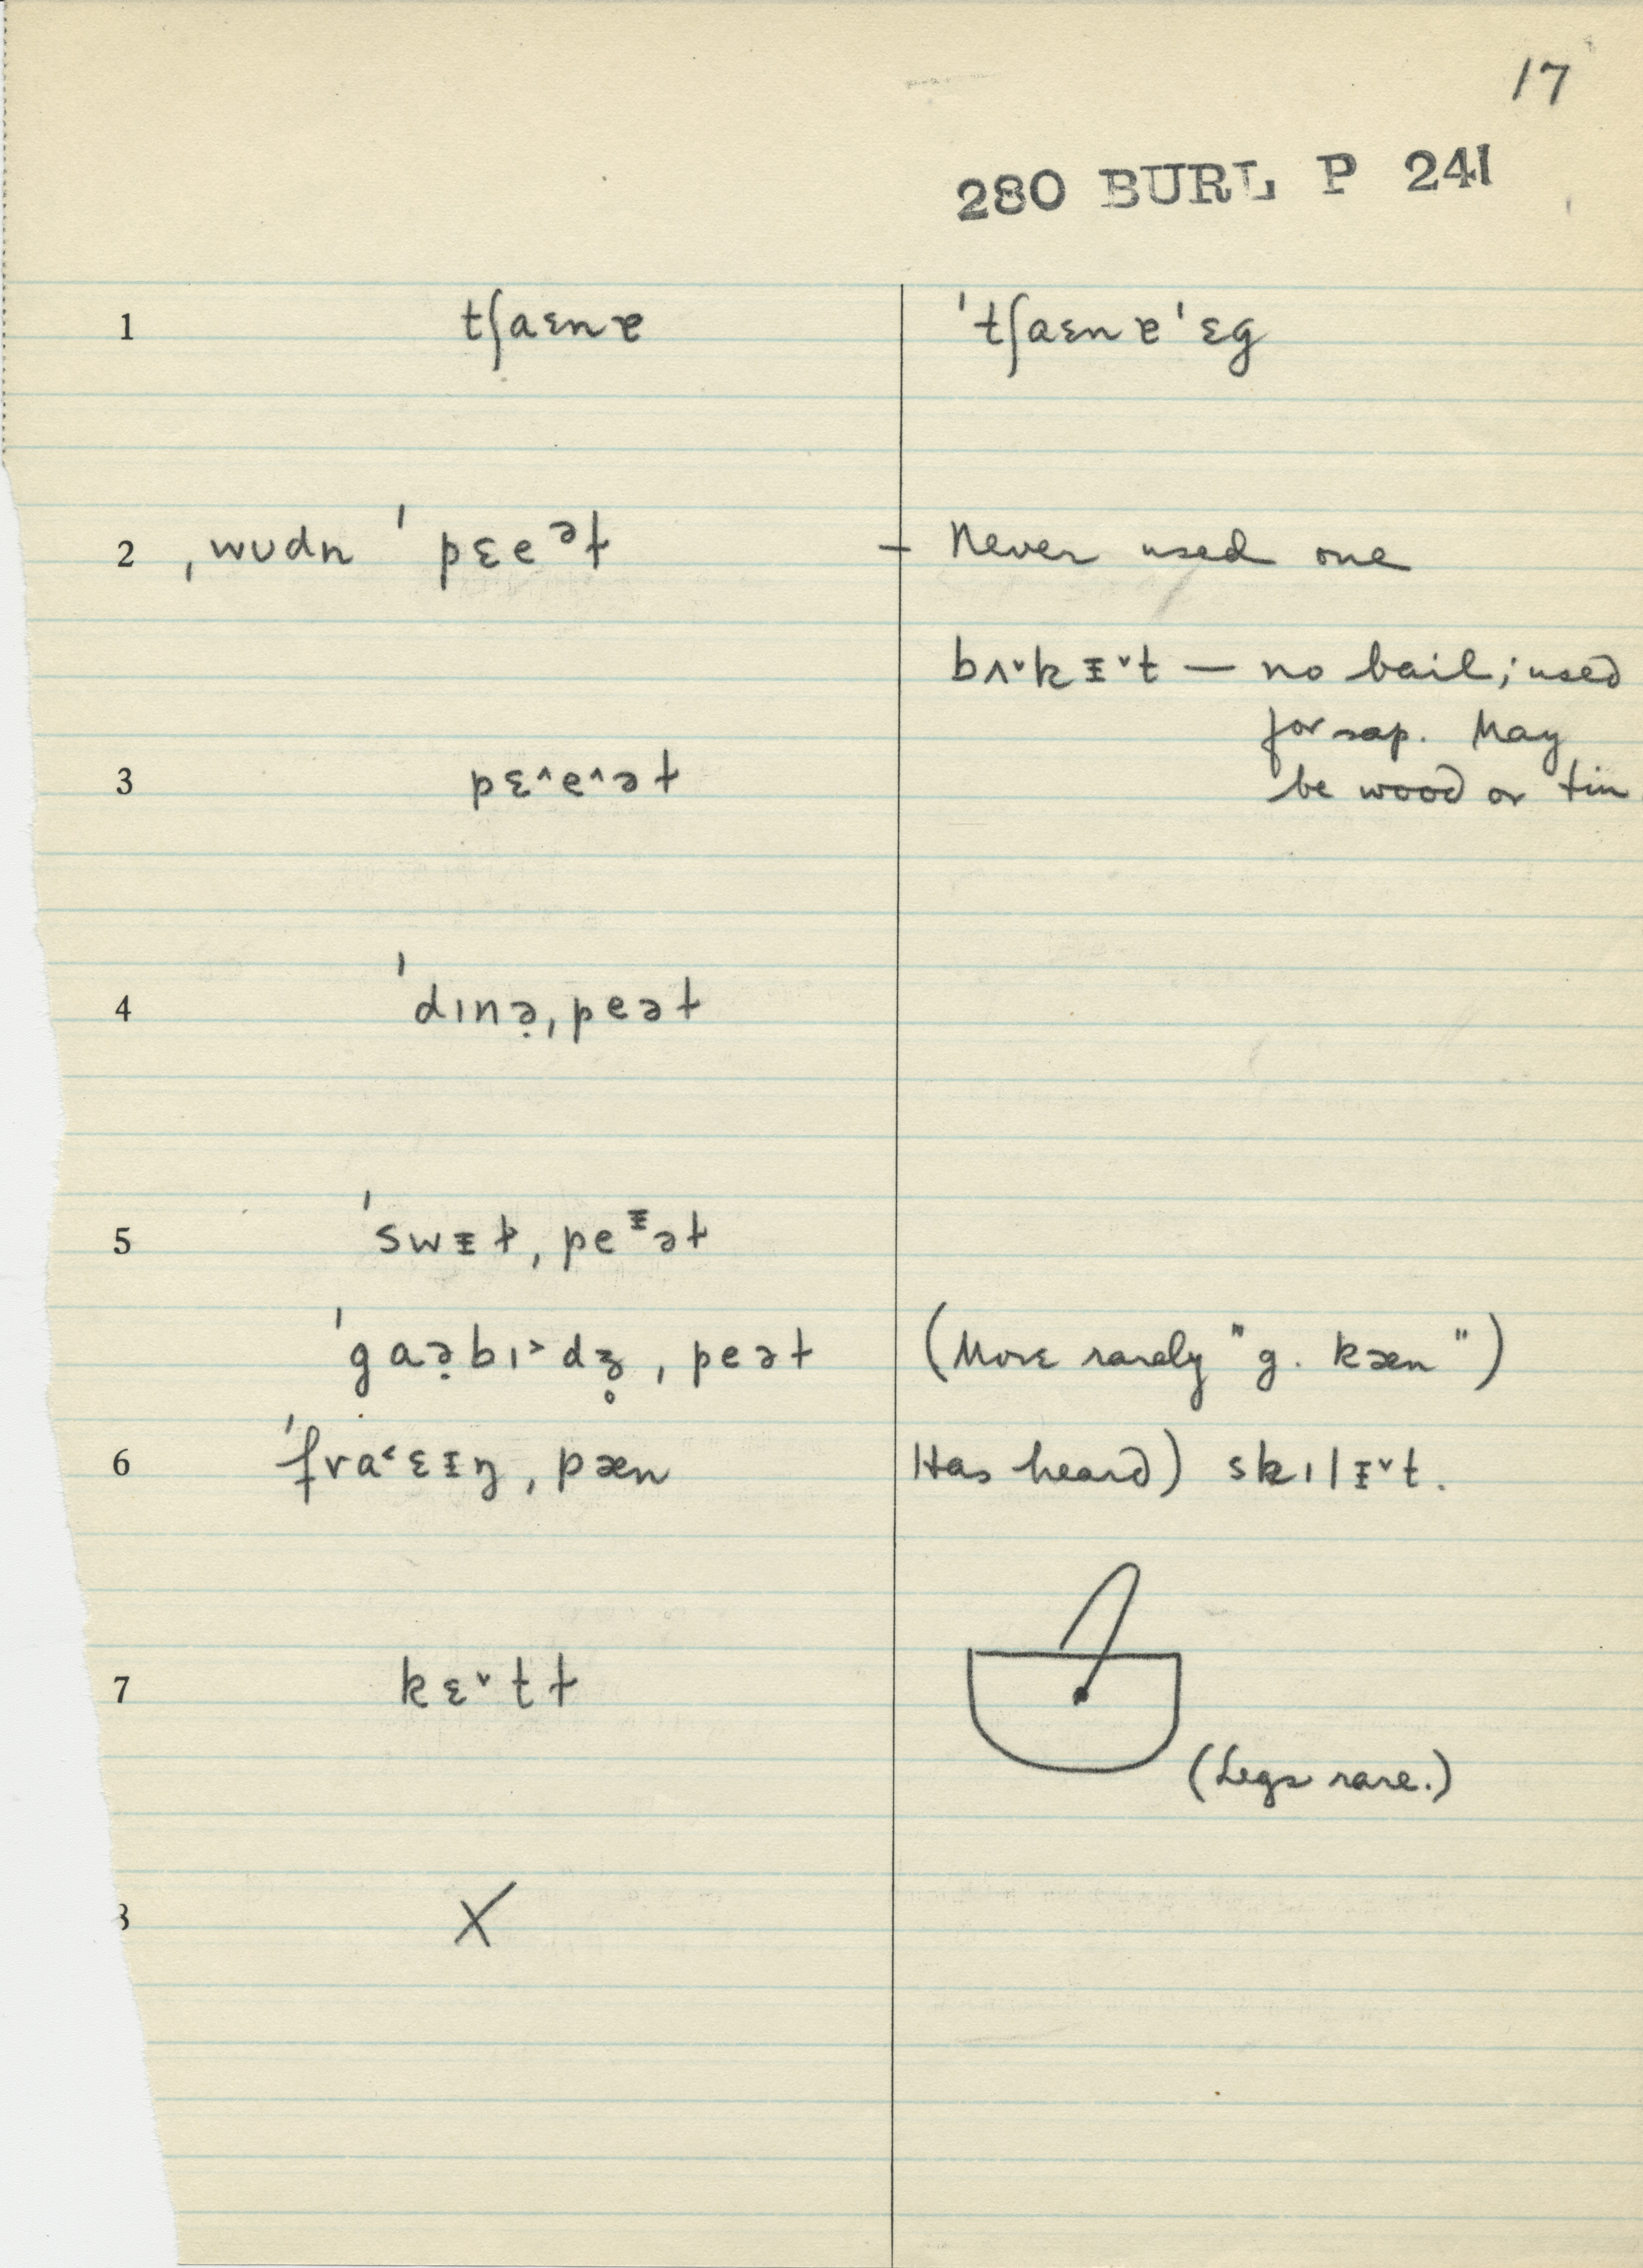 17
280 BURL P 241
1 tʃaɛnɐ ˈtʃaɛnɐˈɛg
2 ˌwʊdn ˈpɛeᵊɫ — Never used one
bʌ˅kᵻ˅t — no bail; used
for sap. May
3 pɛ˄e˄əɫ be wood or tin
4 ˈdɪnə̣ˌpeəɫ
5 ˈswᵻɫˌpeᵻəɫ
ˈgaə̣bɪ˃dʒ̥ˌpeəɫ (More rarely "g. kæn")
6 ˈfra˂ɛᵻŋˌpæn Has heard) skɪlᵻ˅t.
7 kɛ˅tɫ
(Legs rare.)
8 X